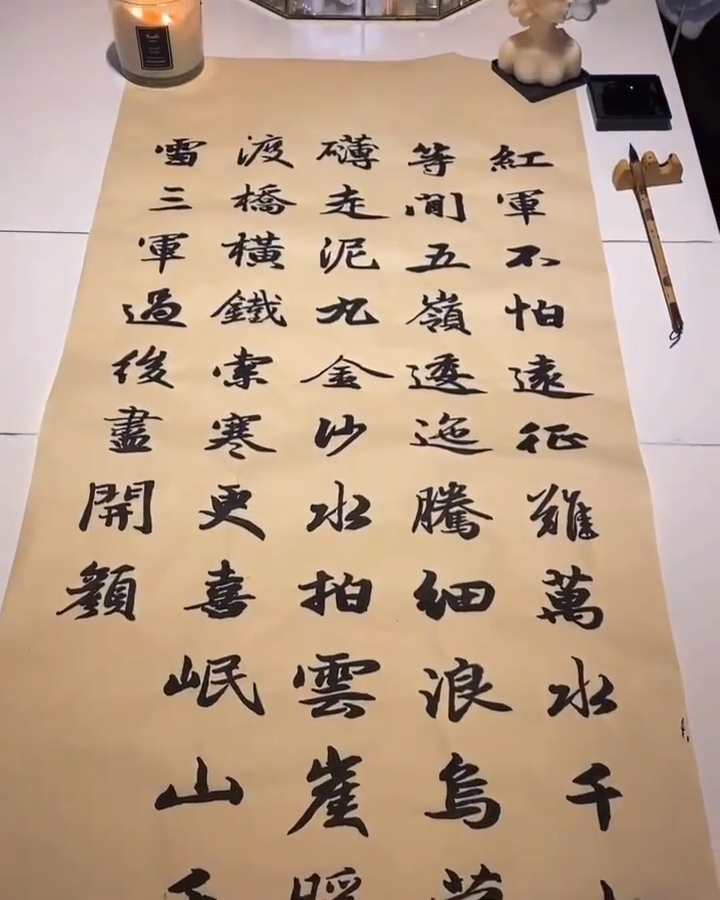 紅軍不怕遠征難萬水千
等閒五嶺逶迤騰細浪烏蒙
礴走泥丸金沙水拍雲崖暖
渡橋橫鐵索寒更喜岷山千
雪三軍過後盡開顏